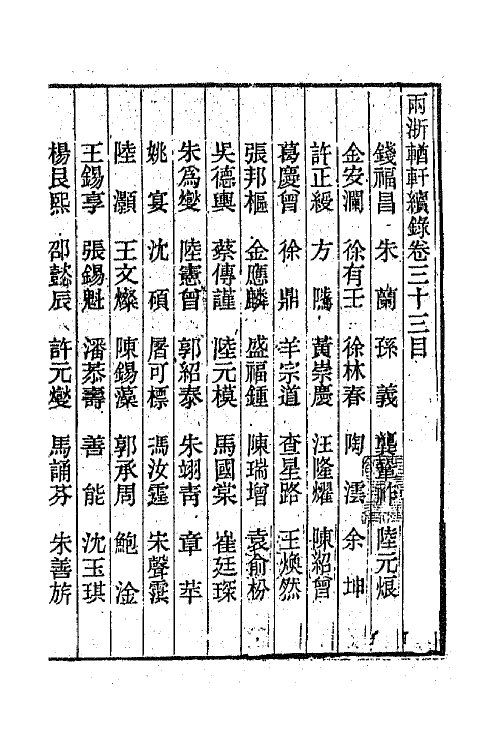 兩浙輶軒續錄卷三十三目
錢福昌 朱蘭 孫義 龔肇祚 陸元烺
金安瀾 徐有壬 徐林春 陶澐 余坤
許正綬 方 黃崇慶 汪隆耀 陳紹曾
葛慶曾 徐鼎 羊宗道 查星路 王煥然
張邦樞 金應麟 盛福鍾 陳瑞增 袁俞枌
吳德輿 蔡傳謹 陸元模 馬國棠 崔廷琛
朱爲燮 陸憲曾 郭紹泰 朱翊靑 章苹
姚宴 沈碩 屠可標 馮汝霆 宋聲
陸灝 王文燦 陳錫藻 郭承周 鮑淦
王錫享 張錫魁 潘恭壽 善能 沈玉琪
楊艮熙 邵懿辰 許元燮 馬誦芬 朱善旂